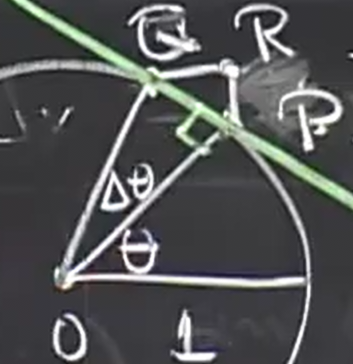 Q R
P
Δθ
θ
0 1